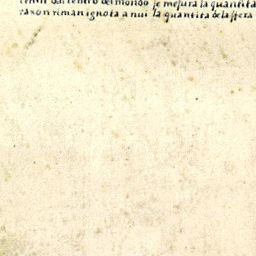 dal centro del mondo se mesura la quantita
raxon riman ignota a nui la quantita de la spera